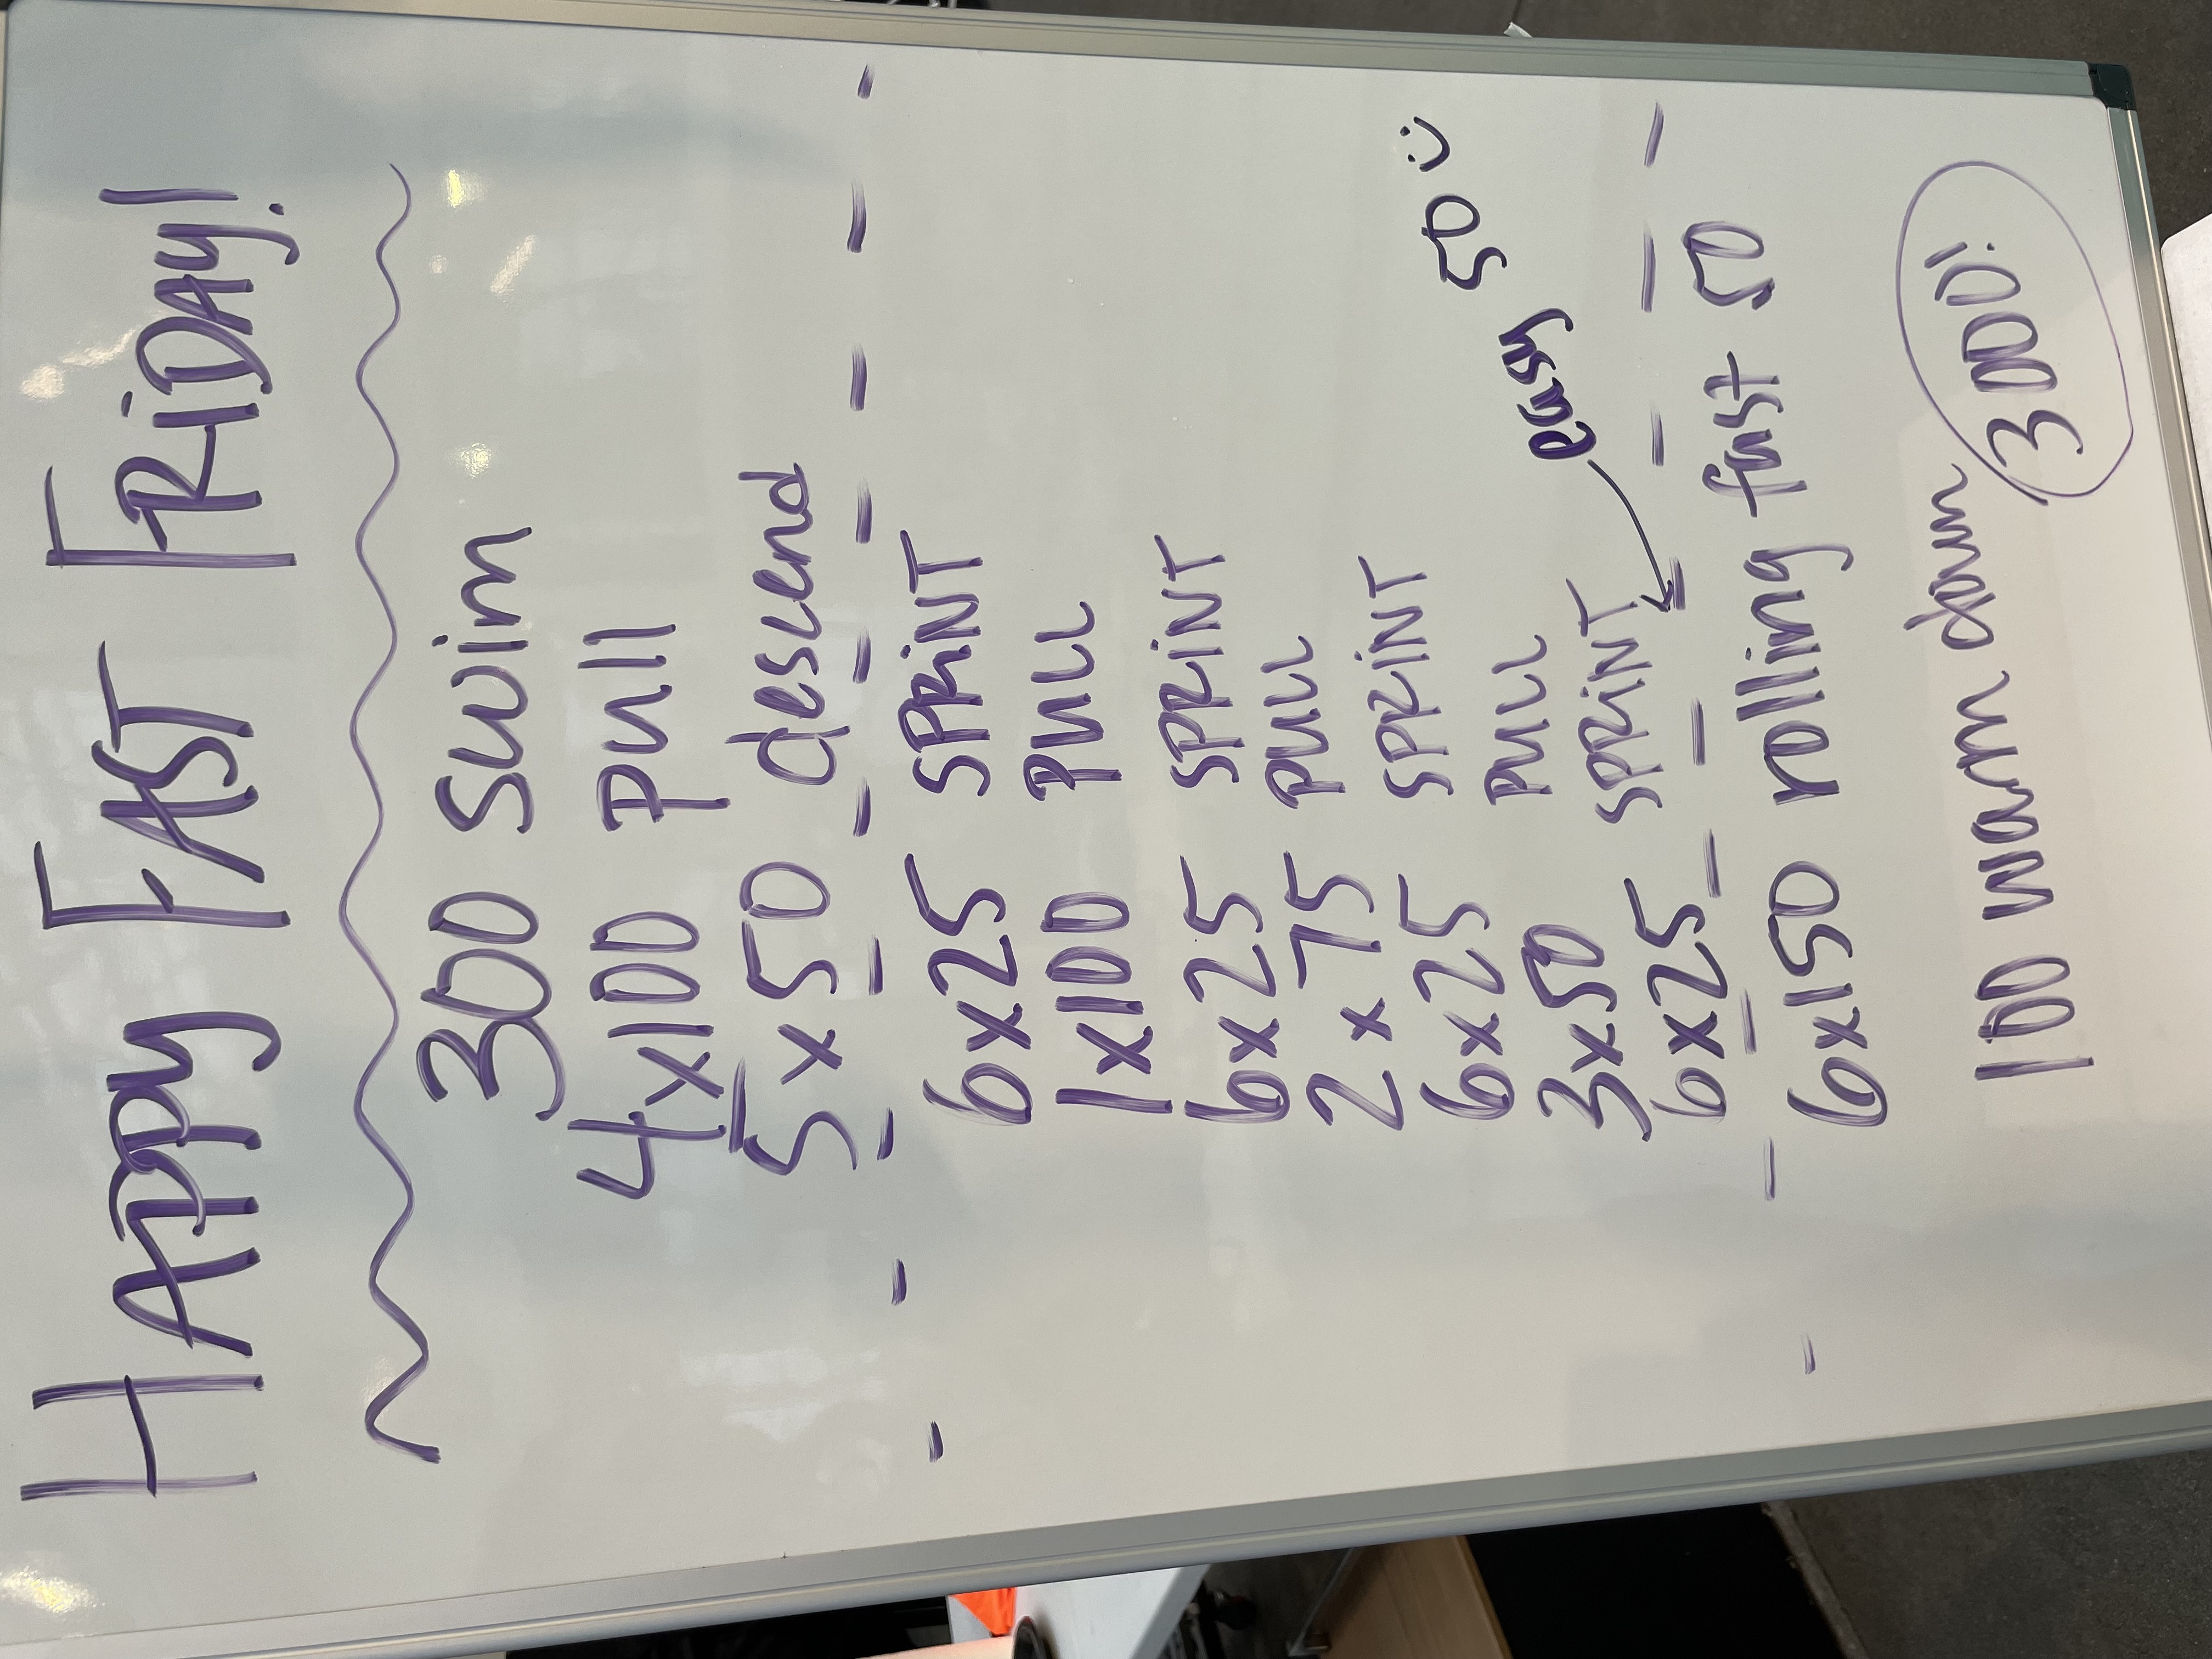 HAPPY FAST FRiDAY!
300 swim
4x100 pull
5x50 descend
6x25 SPRiNT
1x100 PULL
6x25 SPRiNT
2x75 PULL
6x25 SPRiNT
3x50 PULL
6x25 SPRiNT
easy 50 :)
6x150 rolling fast 50
100 warm down
3000!